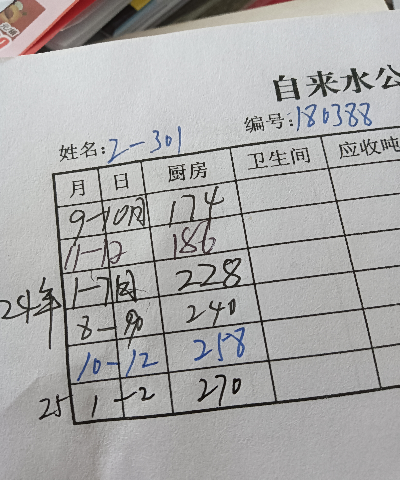 自来水公
编号:180388
姓名:2-301
月 日 厨房 卫生间 应收吨
9-10月 174
11-12 186
24年 1-7月 228
8-90 240
10-12 258
25 1-2 270